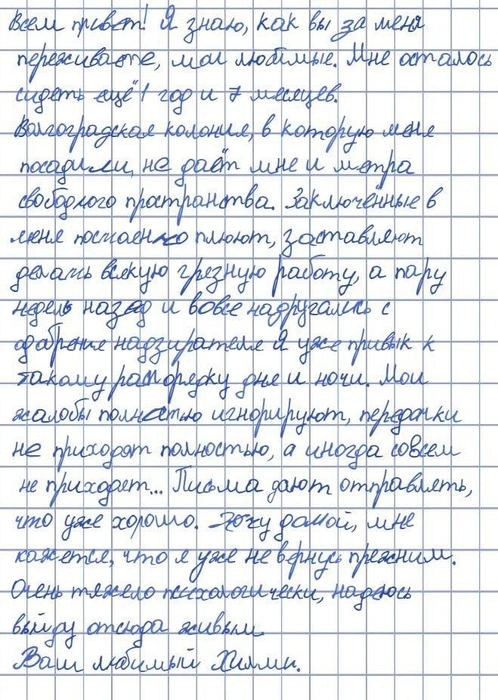 Всем привет! Я знаю, как вы за меня
переживаете, мои любимые. Мне осталось
сидеть ещё 1 год и 7 месяцев.
Волгоградская колония, в которую меня
посадили, не даёт мне и метра
свободного пространства. Заключённые в
меня постоенно плюют, заставляют
делать всякую грезную работу, а пару
недель назад и вовсе надругались с
одобрения надзирателя Я уже привык к
такому распорядку дне и ночи. Мои
жалобы полностю игнорируют, передачки
не приходят полностью, а иногда совсем
не приходят... Письма дают отправлять,
что уже хорошо. Хочу домой, мне
кажется, что я уже не вернусь прежним.
Очень тяжело психологически, надеюсь
выйду отсюда живым
Ваш любимый Хилми.